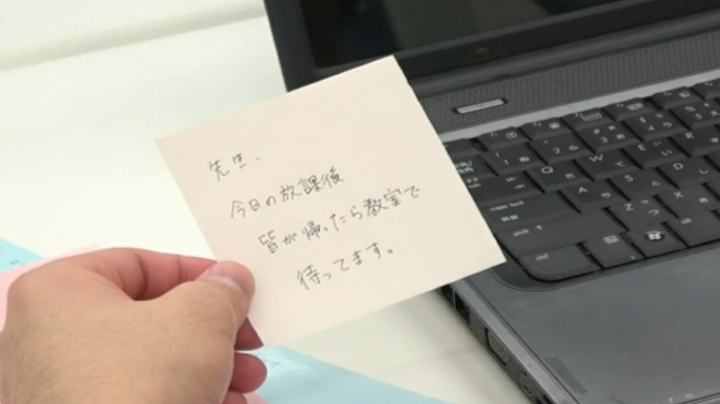 先生、
今日の放課後
皆が帰ったら教室で
待ってます。